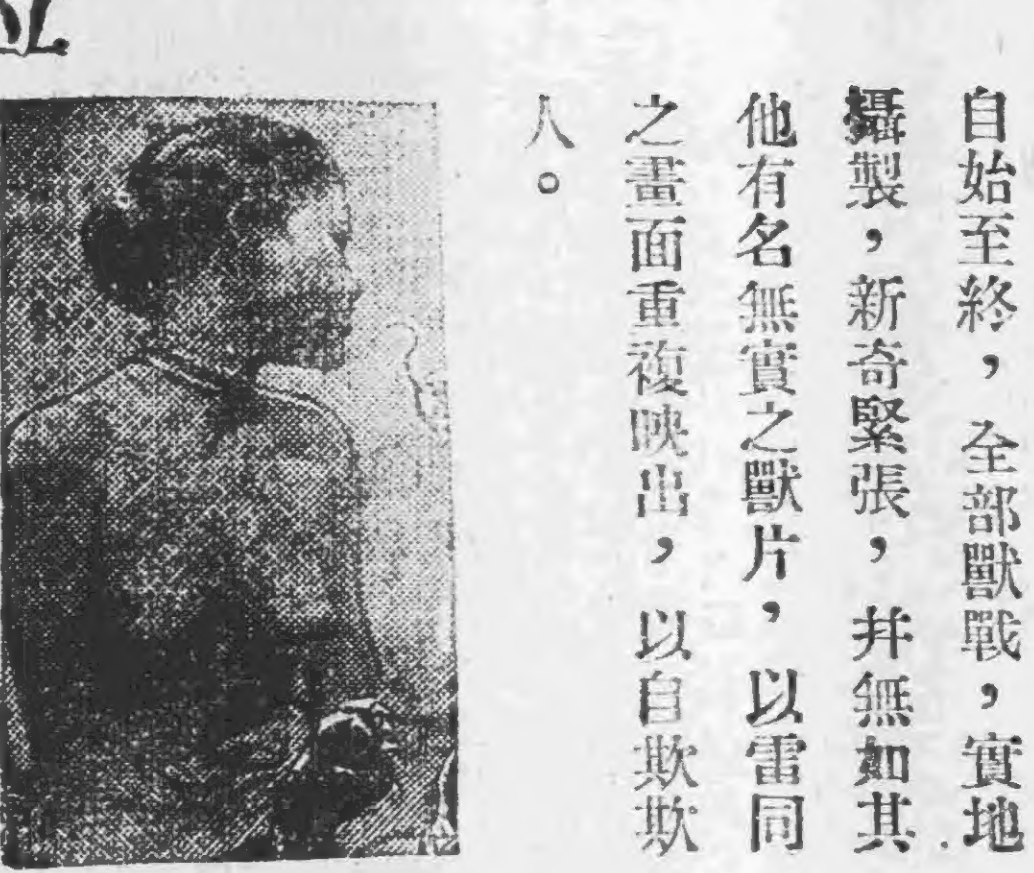 自始至終，全部獸戰，實地
攝製，新奇緊張，幷無如其
他有名無實之獸片，以雷同
之畫面重複映出，以自欺欺
人。